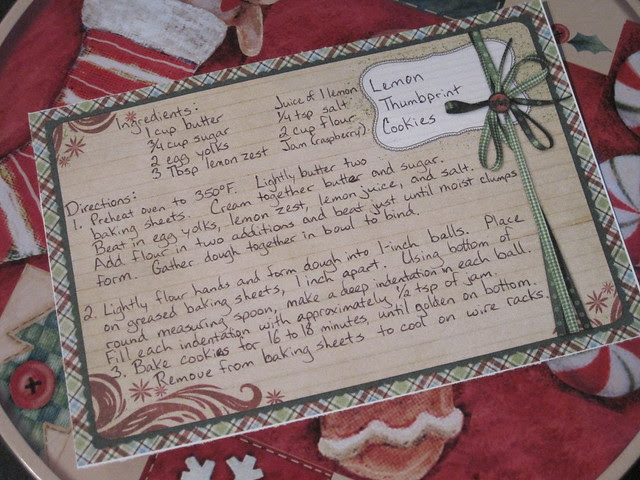 Lemon
Thumbprint
Cookies
Ingredients:
1 cup butter
3/4 cup sugar
2 egg yolks
3 Tbsp lemon zest
Juice of 1 lemon
1/4 tsp salt
2 cup flour
Jam (raspberry)
Directions:
1. Preheat oven to 350°F. Lightly butter two
baking sheets. Cream together butter and sugar.
Beat in egg yolks, lemon zest, lemon juice, and salt.
Add flour in two additions and beat just until moist clumps
form. Gather dough together in bowl to bind.
2. Lightly flour hands and form dough into 1-inch balls. Place
on greased baking sheets, 1 inch apart. Using bottom of
round measuring spoon, make a deep indentation in each ball.
Fill each indentation with approximately 1/2 tsp of jam.
3. Bake cookies for 16 to 18 minutes, until golden on bottom.
Remove from baking sheets to cool on wire racks.